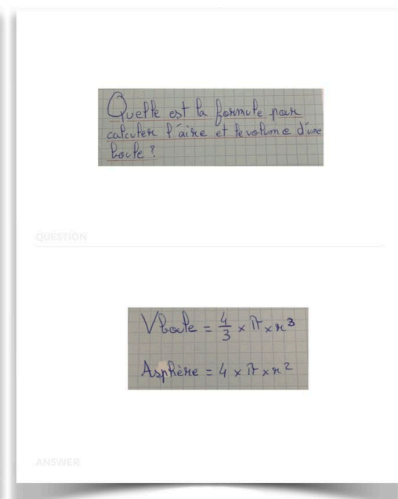 Quelle est la formule pour
calculer l'aire et le volume d'une
boule ?
QUESTION
V boule = 4/3 × π × r³
A sphère = 4 × π × r²
ANSWER